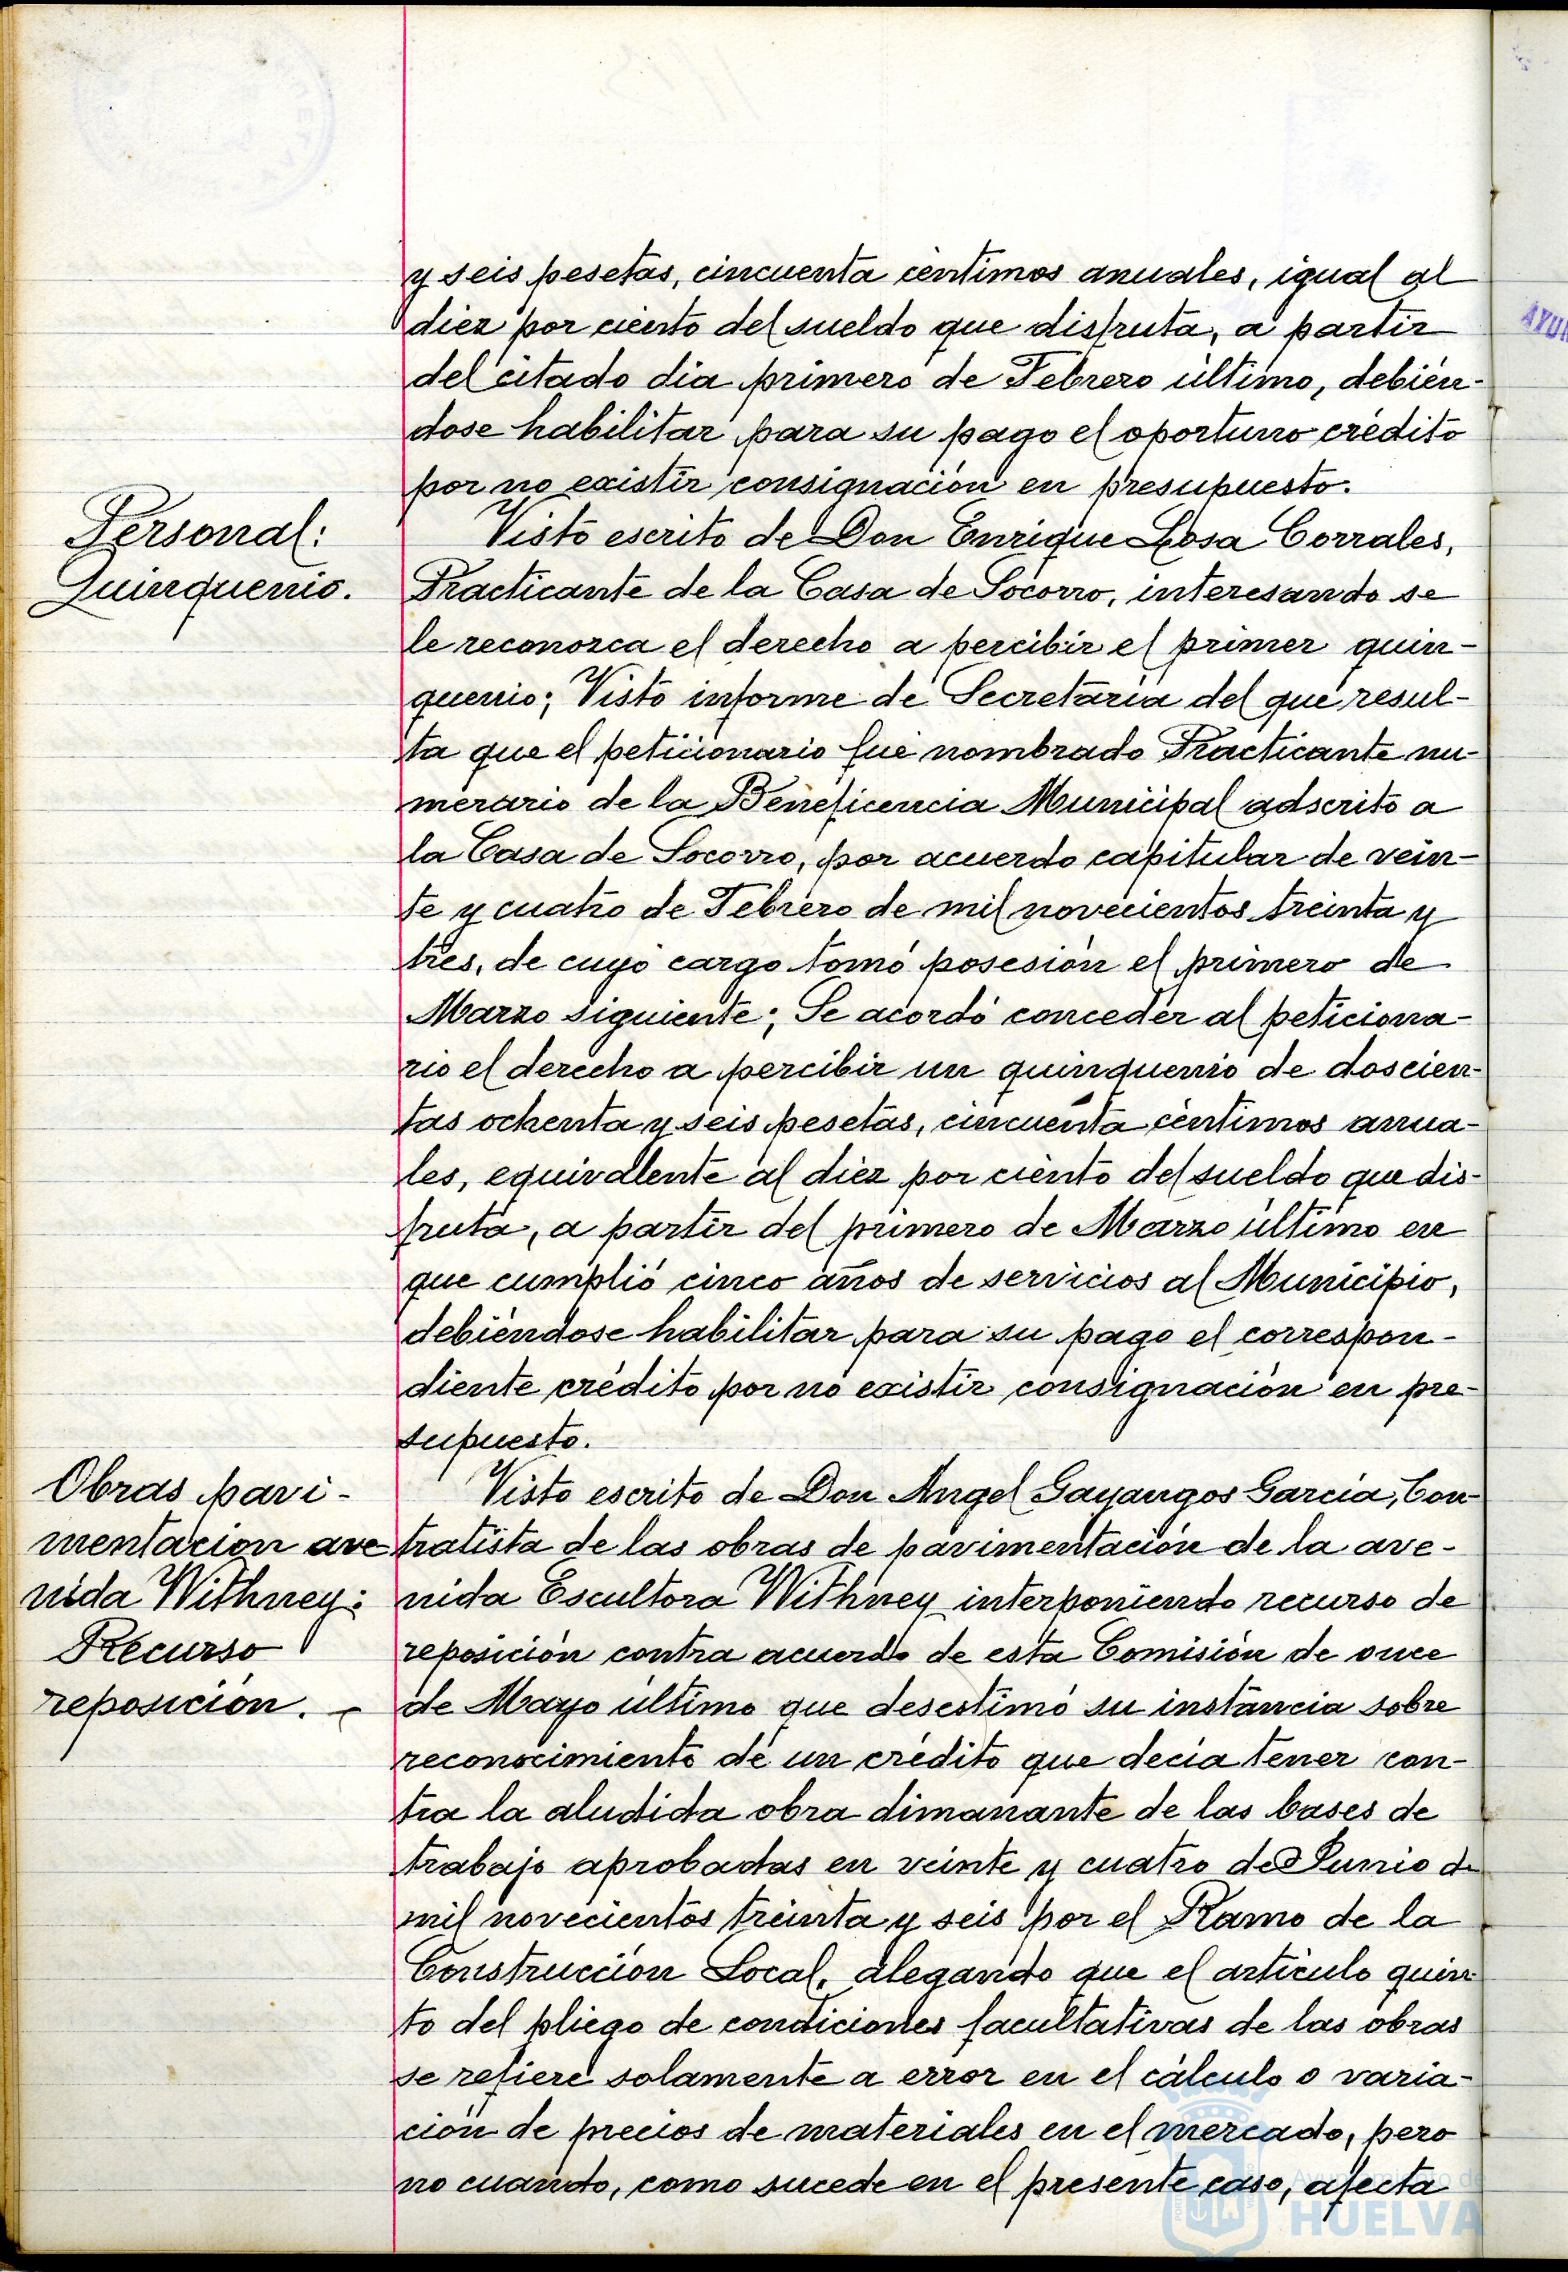 y seis pesetas, cincuenta céntimos anuales, igual al
diez por ciento del sueldo que disfruta, a partir
del citado dia primero de Febrero último, debién-
dose habilitar para su pago el oportuno crédito
por no existir consignación en presupuesto.
Personal:
Quinquenio.
Visto escrito de Don Enrique Losa Corrales,
Practicante de la Casa de Socorro, interesando se
le reconozca el derecho a percibir el primer quin-
quenio; Visto informe de Secretaría del que resul-
ta que el peticionario fue nombrado Practicante nu-
merario de la Beneficencia Municipal adscrito a
la Casa de Socorro, por acuerdo capitular de vein-
te y cuatro de Febrero de mil novecientos treinta y
tres, de cuyo cargo tomó posesión el primero de
Marzo siguiente; Se acordó conceder al peticiona-
rio el derecho a percibir un quinquenio de doscien-
tas ochenta y seis pesetas, cincuenta céntimos anua-
les, equivalente al diez por ciento del sueldo que dis-
fruta, a partir del primero de Marzo último en
que cumplió cinco años de servicios al Municipio,
debiéndose habilitar para su pago el correspon-
diente crédito por no existir consignación en pre-
supuesto.
Obras pavi-
mentacion ave
nida Withney:
Recurso
reposición. -
Visto escrito de Don Angel Gayangos García, Con
tratista de las obras de pavimentación de la ave-
nida Escultora Withney interponiendo recurso de
reposición contra acuerdo de esta Comisión de once
de Mayo último que desestimó su instancia sobre
reconocimiento de un crédito que decía tener con-
tra la aludida obra dimanante de las bases de
trabajo aprobadas en veinte y cuatro de Junio de
mil novecientos treinta y seis por el Ramo de la
Construcción Local, alegando que el artículo quin
to del pliego de condiciones facultativas de las obras
se refiere solamente a error en el cálculo o varia-
ción de precios de materiales en el mercado, pero
no cuando, como sucede en el presente caso, afecta
Ayuntamiento de
HUELVA